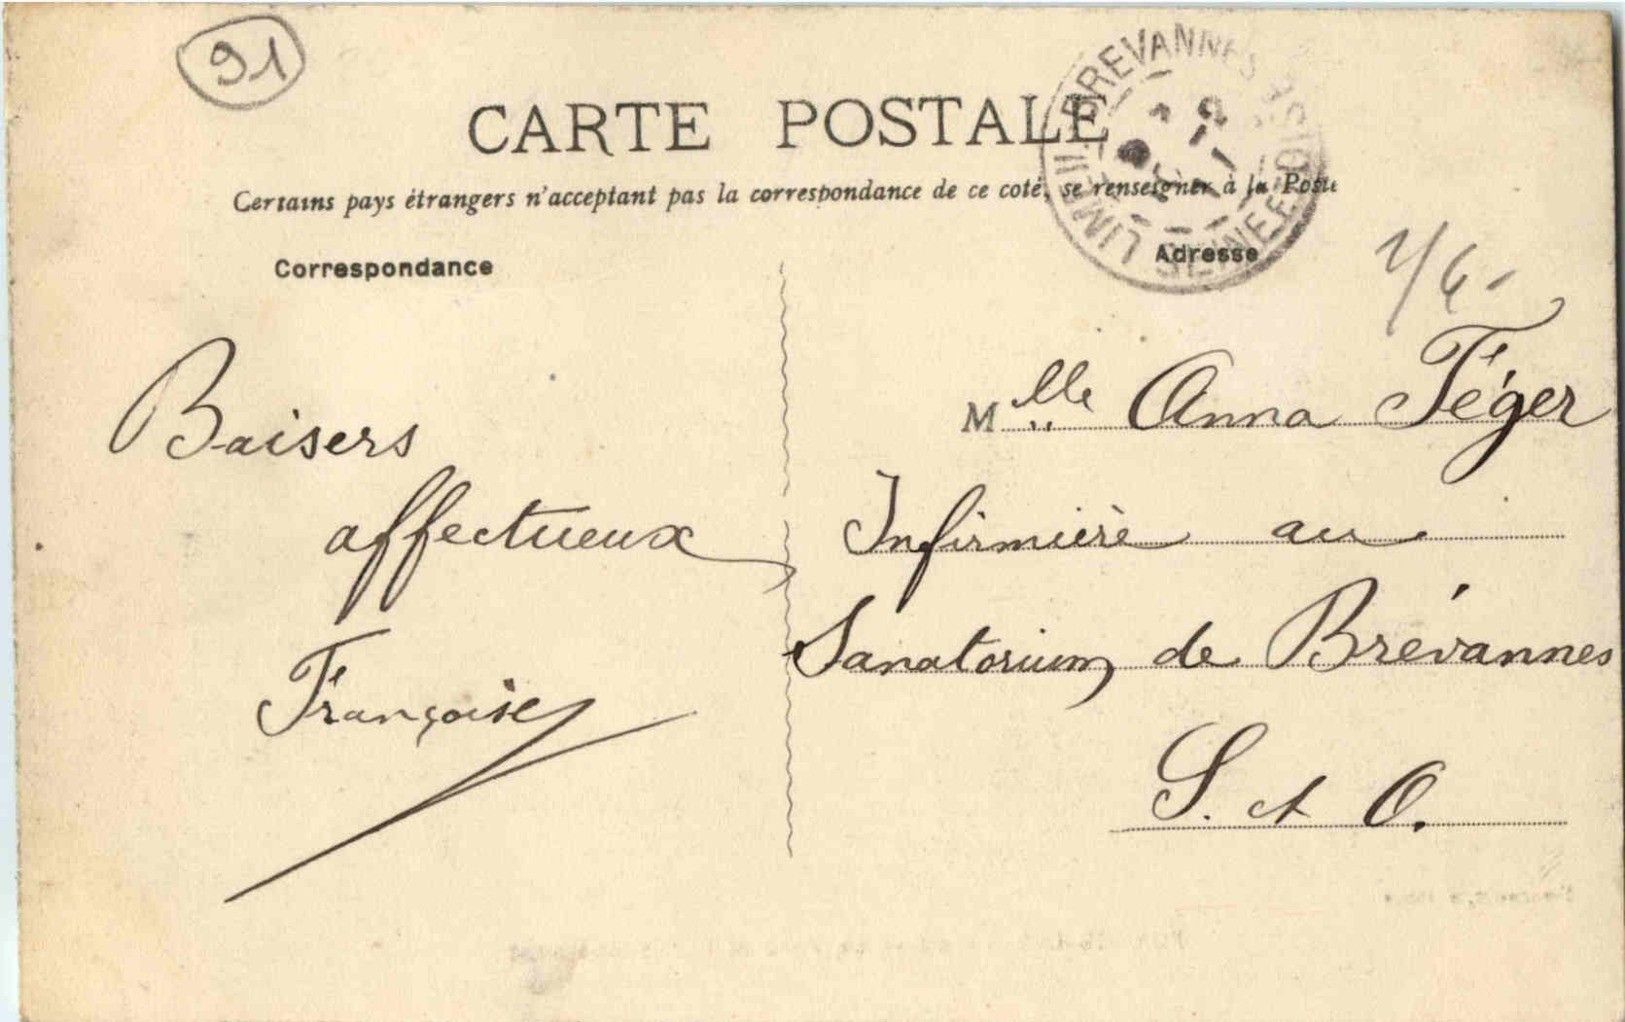 91
CARTE POSTALE
Certains pays étrangers n'acceptant pas la correspondance de ce coté, se renseigner à la Poste
Correspondance
Adresse
LIMEIL-BREVANNES
SEINE-ET-OISE
Baisers
affectueux
Françoise
Mlle Anna Féger
Infirmière au
Sanatorium de Brévannes
S. et O.